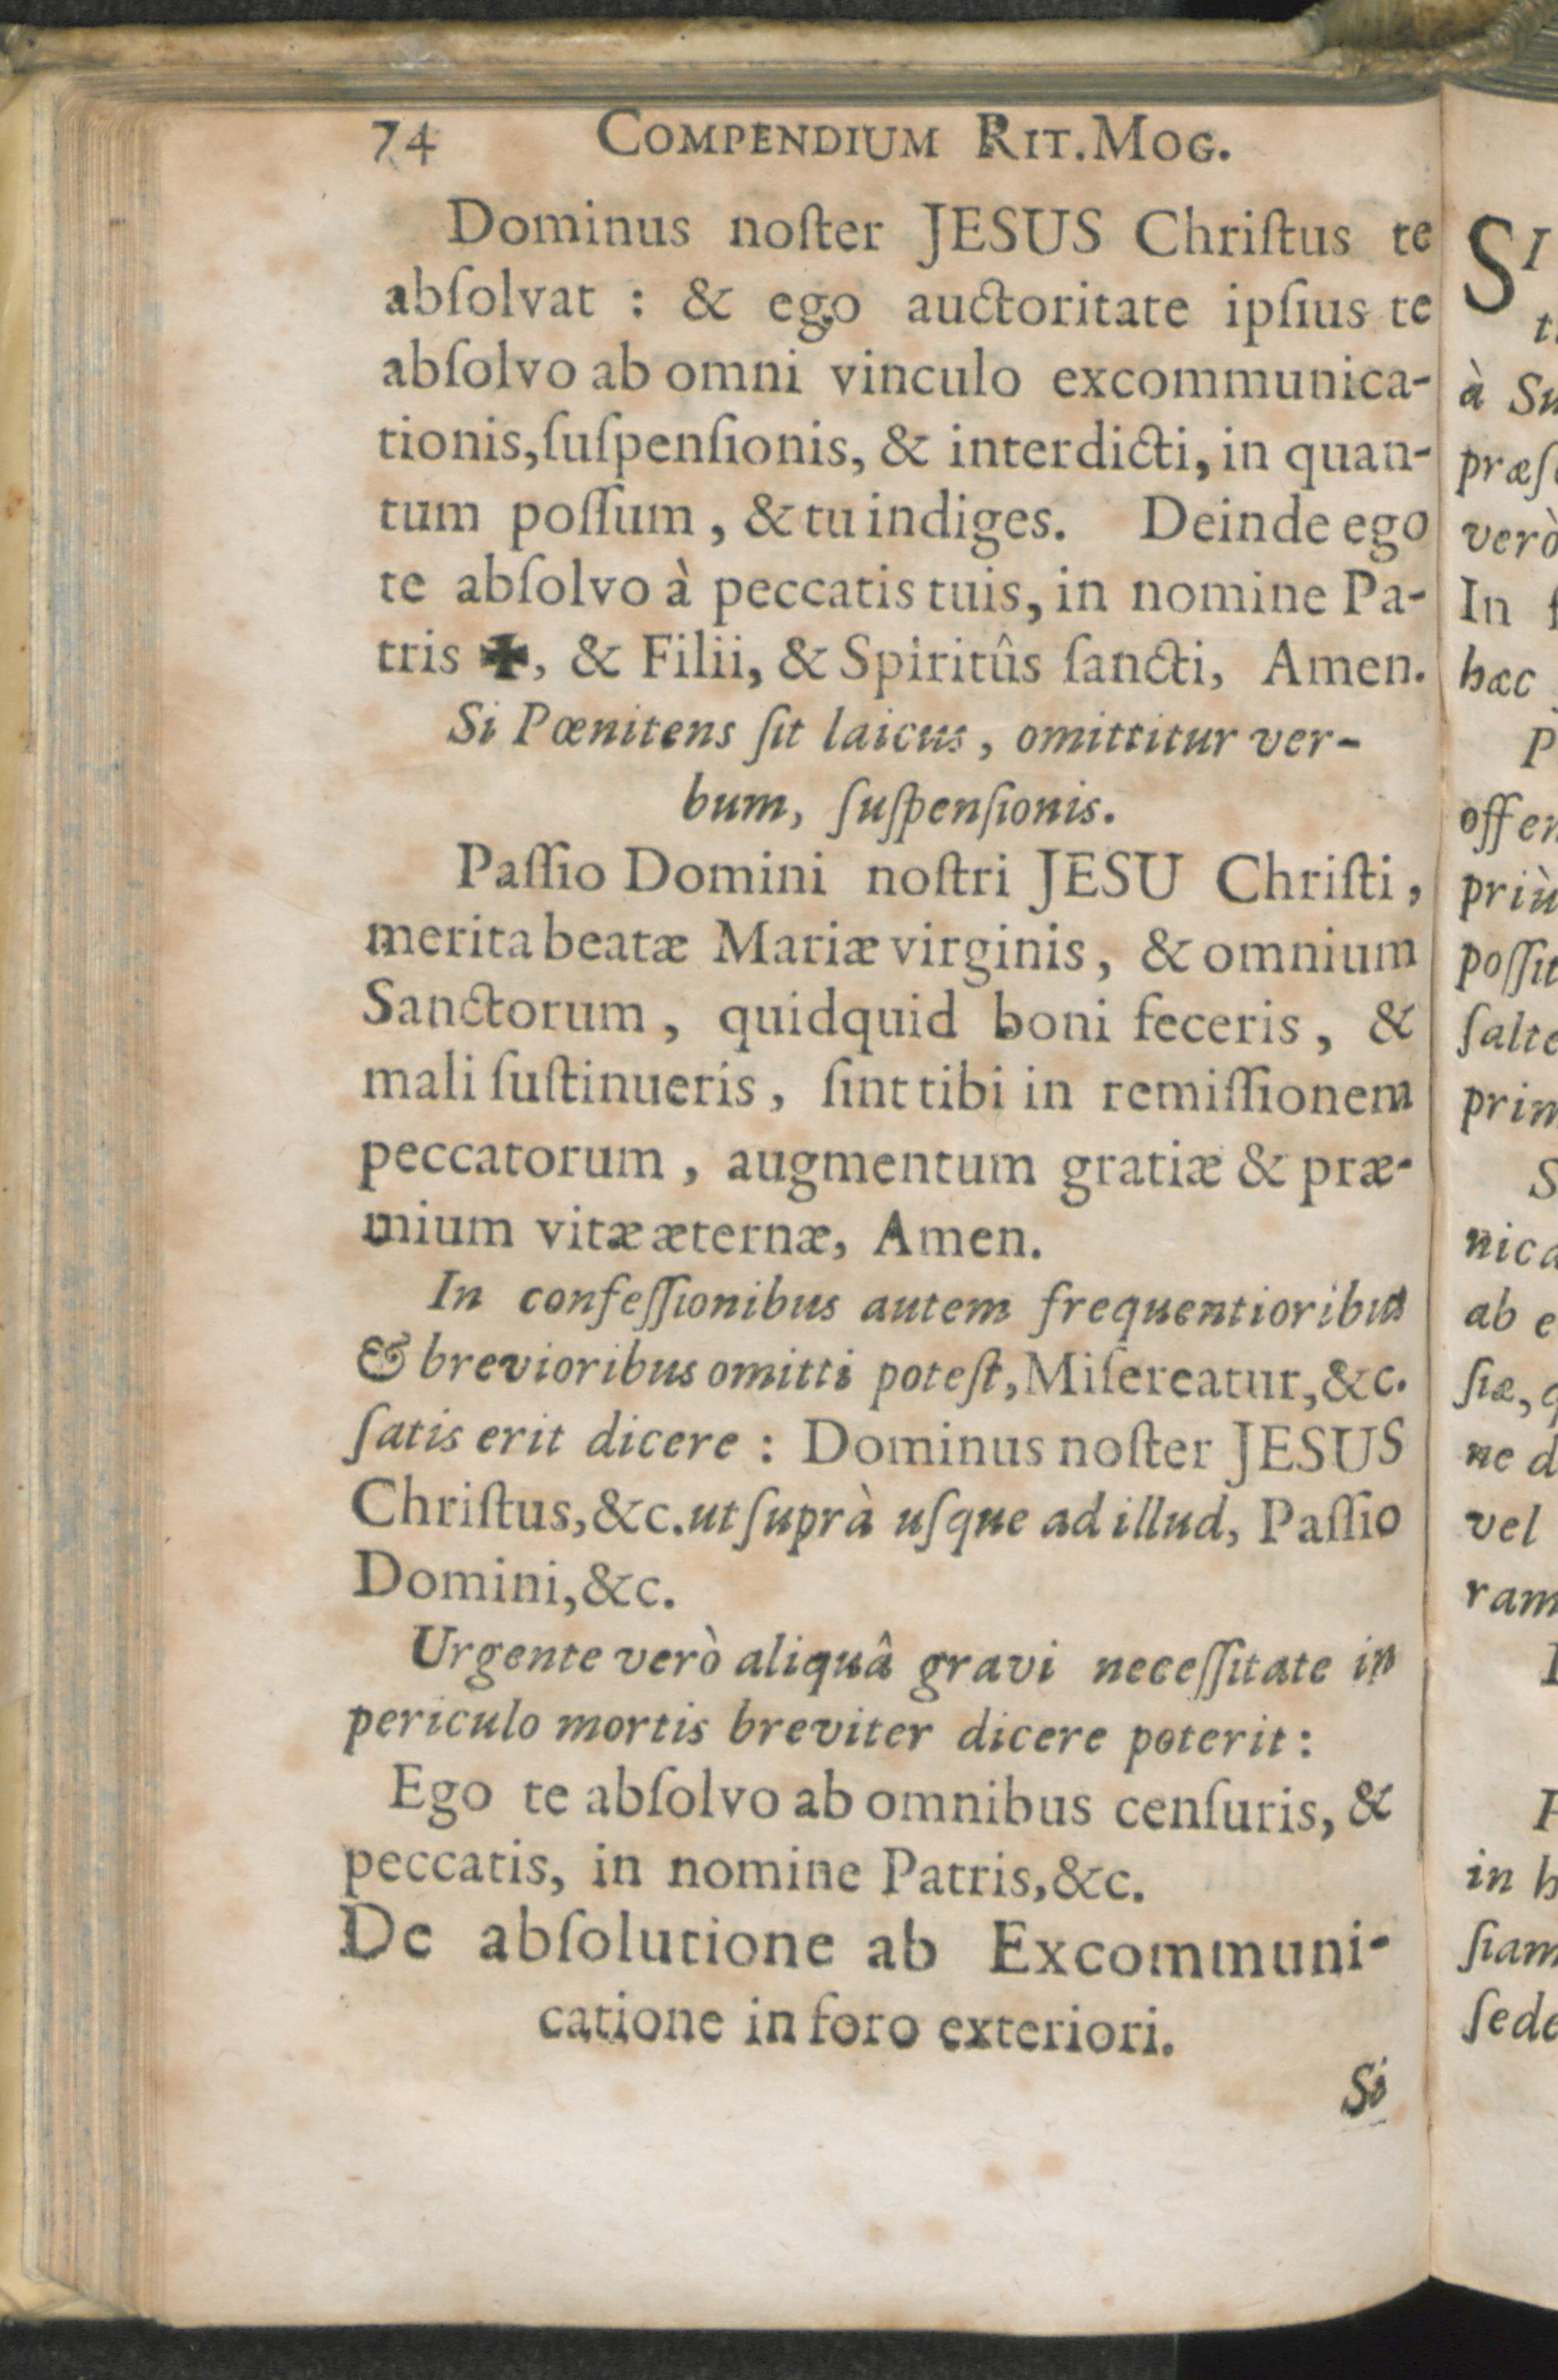 74 COMPENDIUM RIT. MOG.
Dominus noſter JESUS Chriſtus te
abſolvat : & ego auctoritate ipſius te
abſolvo ab omni vinculo excommunica-
tionis, ſuſpenſionis, & interdicti, in quan-
tum poſſum, & tu indiges. Deinde ego
te abſolvo à peccatis tuis, in nomine Pa-
tris ✠, & Filii, & Spiritûs ſancti, Amen.
Si Pœnitens ſit laicus, omittitur ver-
bum, ſuſpenſionis.
Paſſio Domini noſtri JESU Chriſti,
merita beatæ Mariæ virginis, & omnium
Sanctorum, quidquid boni feceris, &
mali ſuſtinueris, ſint tibi in remiſſionem
peccatorum, augmentum gratiæ & præ-
mium vitæ æternæ, Amen.
In confeſſionibus autem frequentioribus
& brevioribus omitti poteſt, Miſereatur, &c.
ſatis erit dicere : Dominus noſter JESUS
Chriſtus, &c. ut ſuprà uſque ad illud, Paſſio
Domini, &c.
Urgente verò aliquâ gravi neceſſitate in
periculo mortis breviter dicere poterit :
Ego te abſolvo ab omnibus cenſuris, &
peccatis, in nomine Patris, &c.
De abſolutione ab Excommuni-
catione in foro exteriori.
Si
SI
à Su
præſ
verò
In
hæc
P
offen
priù
poſſit
ſalte
prim
S
nica
ab e
ſiæ, q
ne d
vel
ram
in h
ſiam
ſede